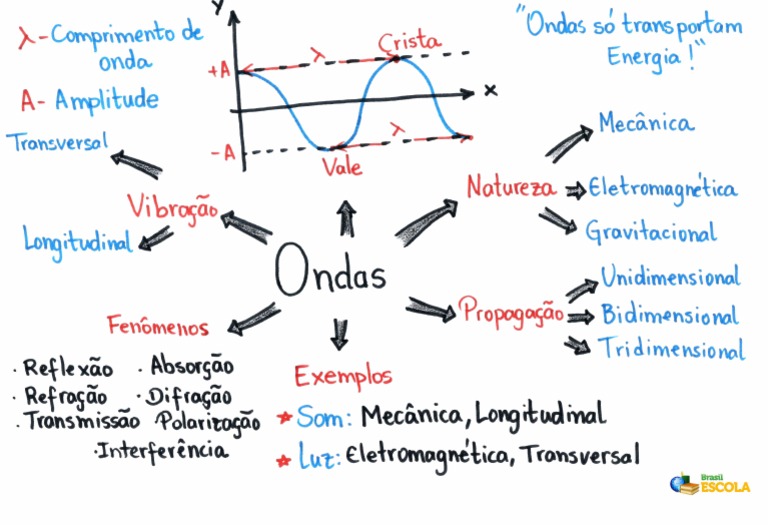 λ-Comprimento de
onda
A- Amplitude
y
+A
-A
λ
Crista
x
λ
Vale
"Ondas só transportam
Energia!"
Transversal
Vibração
Longitudinal
Natureza
Mecânica
Eletromagnética
Gravitacional
Ondas
Propagação
Unidimensional
Bidimensional
Tridimensional
Fenômenos
· Reflexão · Absorção
· Refração · Difração
· Transmissão Polarização
· Interferência
Exemplos
★ Som: Mecânica, Longitudinal
★ Luz: Eletromagnética, Transversal
Brasil
ESCOLA